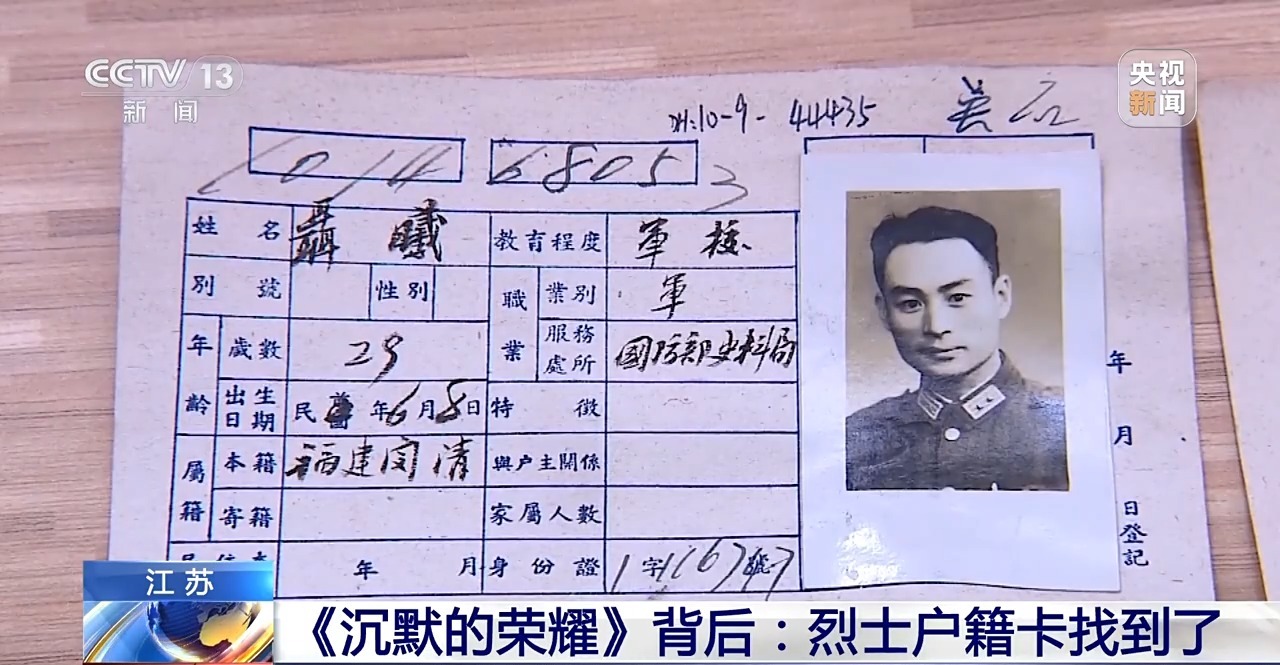 CCTV 13
新闻
央视
新闻
44435
6805
姓名 聶曦 教育程度 軍校
別號 性別 職業 業別 軍
年齡 歲數 29 服務處所 國防部史料局
出生日期 民國 年6月8日 特徵
屬籍 本籍 福建闽清 與户主關係
寄籍 家屬人數
年 月 身份證 字 號
年 月 日登記
江苏
《沉默的荣耀》背后：烈士户籍卡找到了